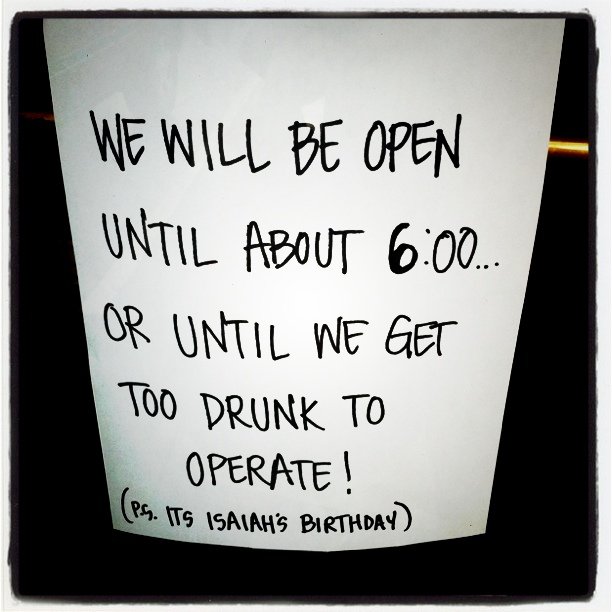 WE WILL BE OPEN
UNTIL ABOUT 6:00...
OR UNTIL WE GET
TOO DRUNK TO
OPERATE!
(P.S. ITS ISAIAH'S BIRTHDAY)